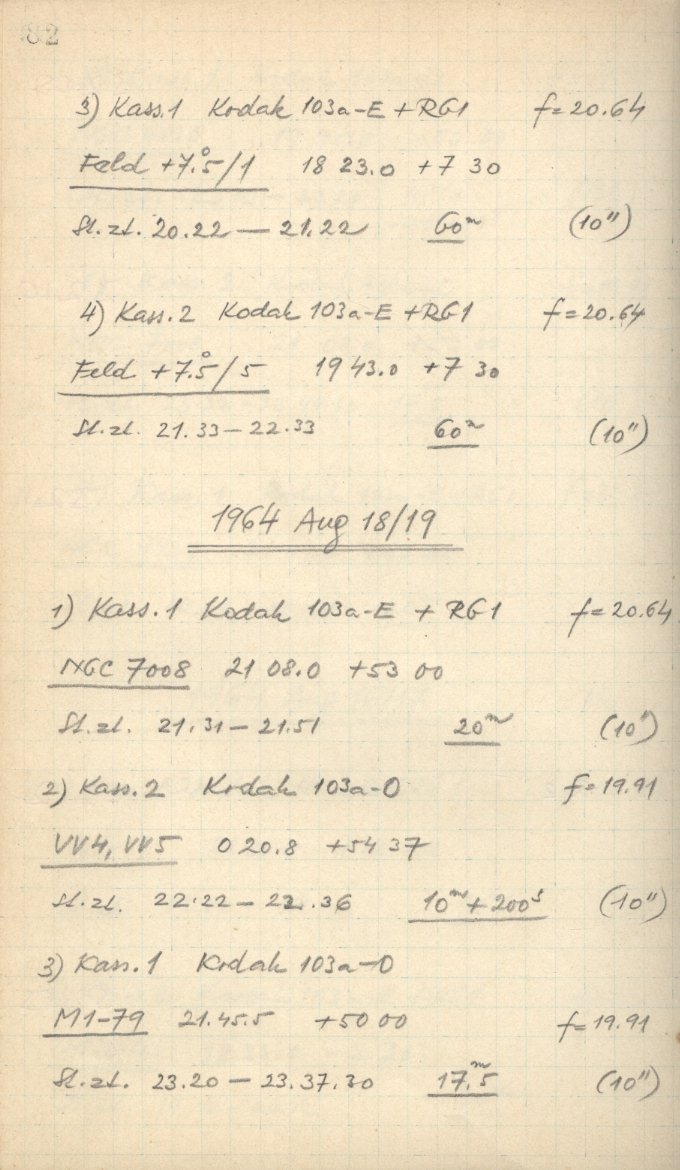 82
3) Kass.1 Kodak 103a-E + RG1 f=20.64
Feld +7.°5/1 18 23.0 +7 30
St.zt. 20.22 — 21.22 60ᵐ (10")
4) Kass.2 Kodak 103a-E + RG1 f=20.64
Feld +7.°5/5 19 43.0 +7 30
St.zt. 21.33 — 22.33 60ᵐ (10")
1964 Aug 18/19
1) Kass.1 Kodak 103a-E + RG1 f=20.64
NGC 7008 21 08.0 +53 00
St.zt. 21.31 — 21.51 20ᵐ (10")
2) Kass.2 Kodak 103a-O f=19.91
VV4, VV5 0 20.8 +54 37
St.zt. 22.22 — 22.36 10ᵐ + 200ˢ (10")
3) Kass.1 Kodak 103a-O
M1-79 21.45.5 +50 00 f=19.91
St.zt. 23.20 — 23.37.30 17.ᵐ5 (10")